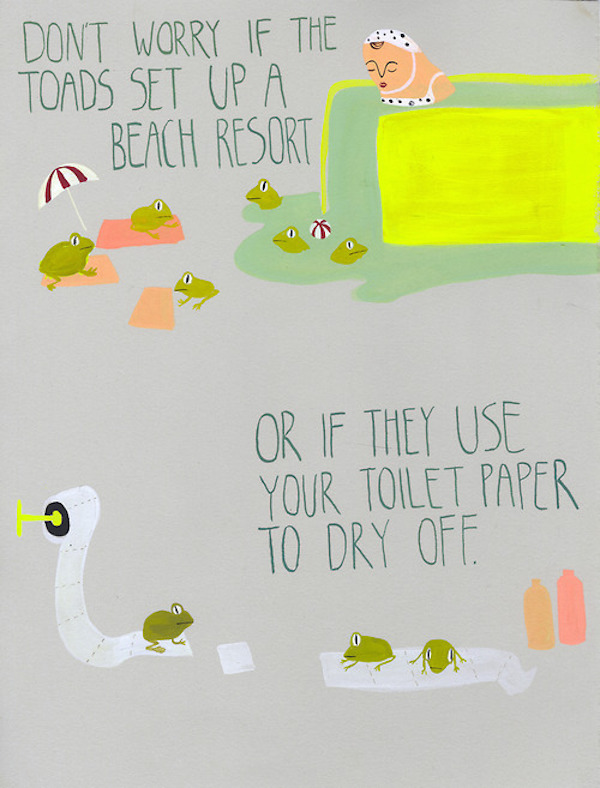 DON'T WORRY IF THE
TOADS SET UP A
BEACH RESORT
OR IF THEY USE
YOUR TOILET PAPER
TO DRY OFF.